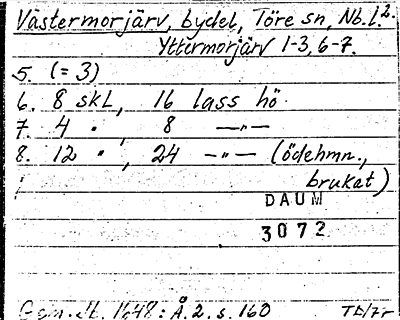 Västermorjärv, bydel, Töre sn, Nb.l. 2.
Yttermorjärv 1-3, 6-7.
5. (= 3)
6. 8 skl, 16 lass hö
7. 4 " , 8 —"—
8. 12 " , 24 —"— (ödehmn.,
brukat)
DAUM
3072
1648: Å.2. s. 160